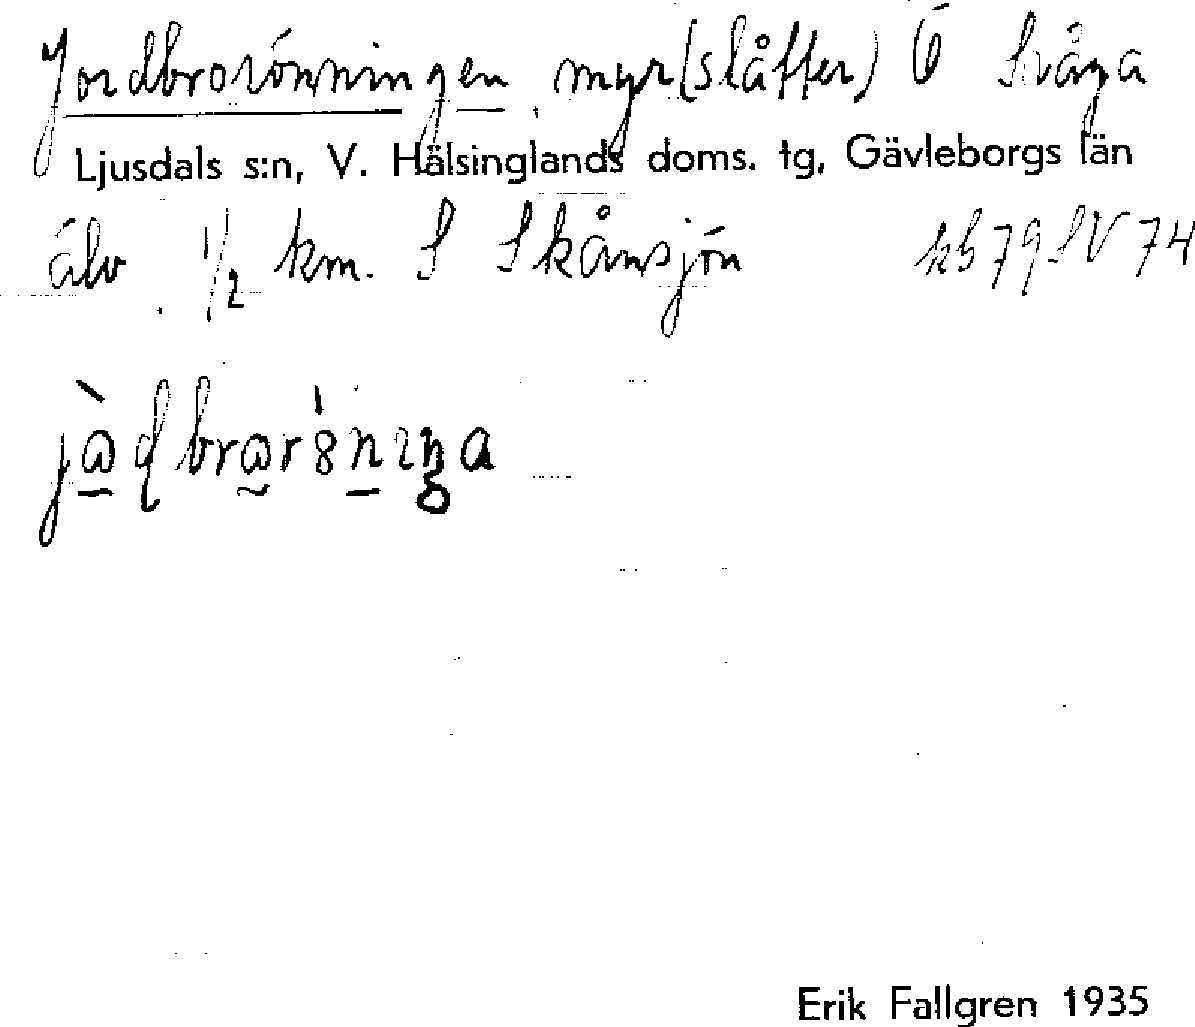 Jordbrorönningen myr(slåtter) Ö Svåga
Ljusdals s:n, V. Hälsinglands doms. tg, Gävleborgs län
älv. 1/2 km. S Skånsjön kb 79 SV 74
Erik Fallgren 1935